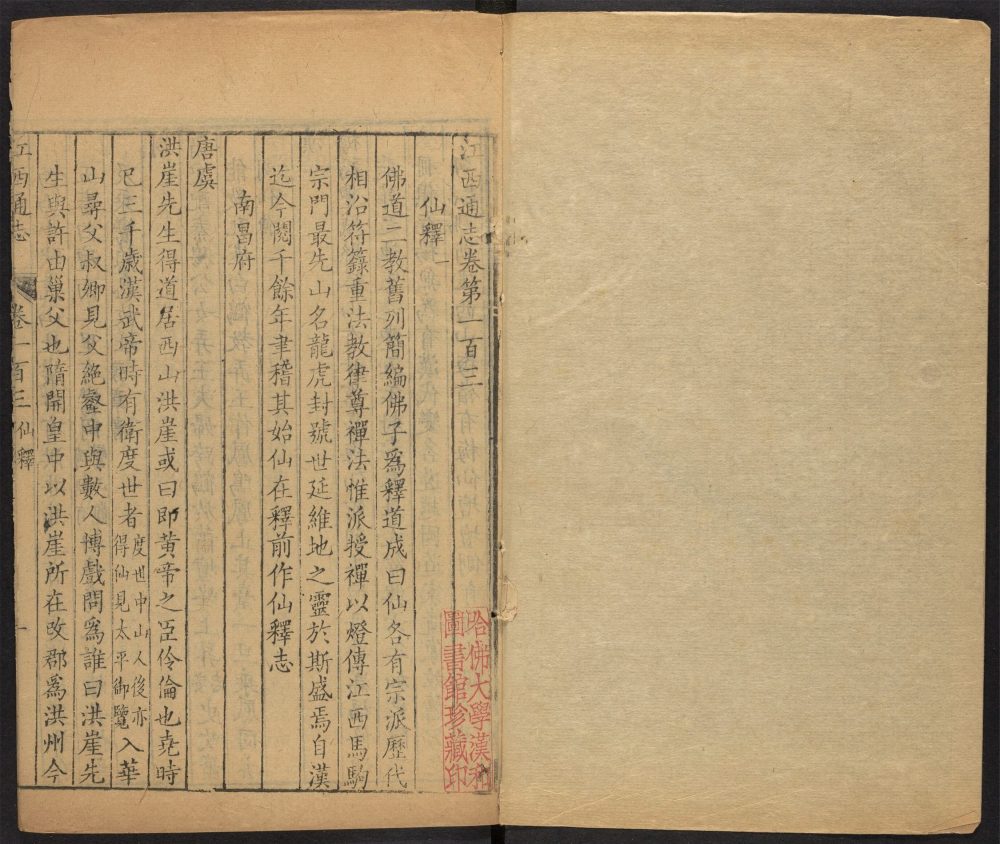 江西通志卷第一百三
仙釋一
佛道二教舊列簡編佛子爲釋道成曰仙各有宗派歷代
相沿符籙重法教律尊禪法惟派授禪以燈傳江西馬駒
宗門最先山名龍虎封號世延維地之靈於斯盛焉自漢
迄今閱千餘年聿稽其始仙在釋前作仙釋志
南昌府
唐虞
洪崖先生得道居西山洪崖或曰即黃帝之臣伶倫也堯時
已三千歲漢武帝時有衛度世者度世中山人後亦得仙見太平御覽入華
山尋父叔卿見父絶壑中與數人博戲問爲誰曰洪崖先
生與許由巢父也隋開皇中以洪崖所在改郡爲洪州今
江西通志 卷一百三 仙釋 一
哈佛大學漢和
圖書館珍藏印